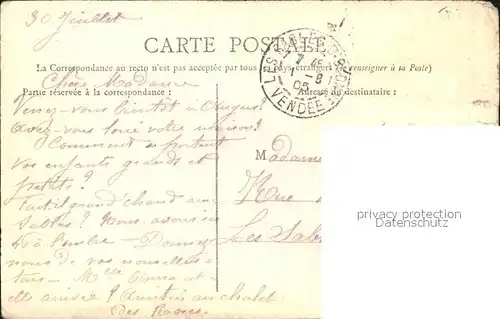 30 Juillet
CARTE POSTALE
La Correspondance au recto n'est pas acceptée par tous les pays étrangers (Se renseigner à la Poste)
Chère Madame
Partie réservée à la correspondance :
Adresse du destinataire :
LES SABLES VENDÉE
1-8
05
Venez-vous bientôt à
Avez-vous loué votre maison?
Comment se portent
vos enfants grands et
petits?
Fait-il grand chaud aux
Sables? Nous avons eu
à l'ombre - Donnez
nous de vos nouvelles à
tous - Melle Anna est
elle arrivée? Amitiés au chalet
des
Madame
Rue
Les Sables
privacy protection
Datenschutz